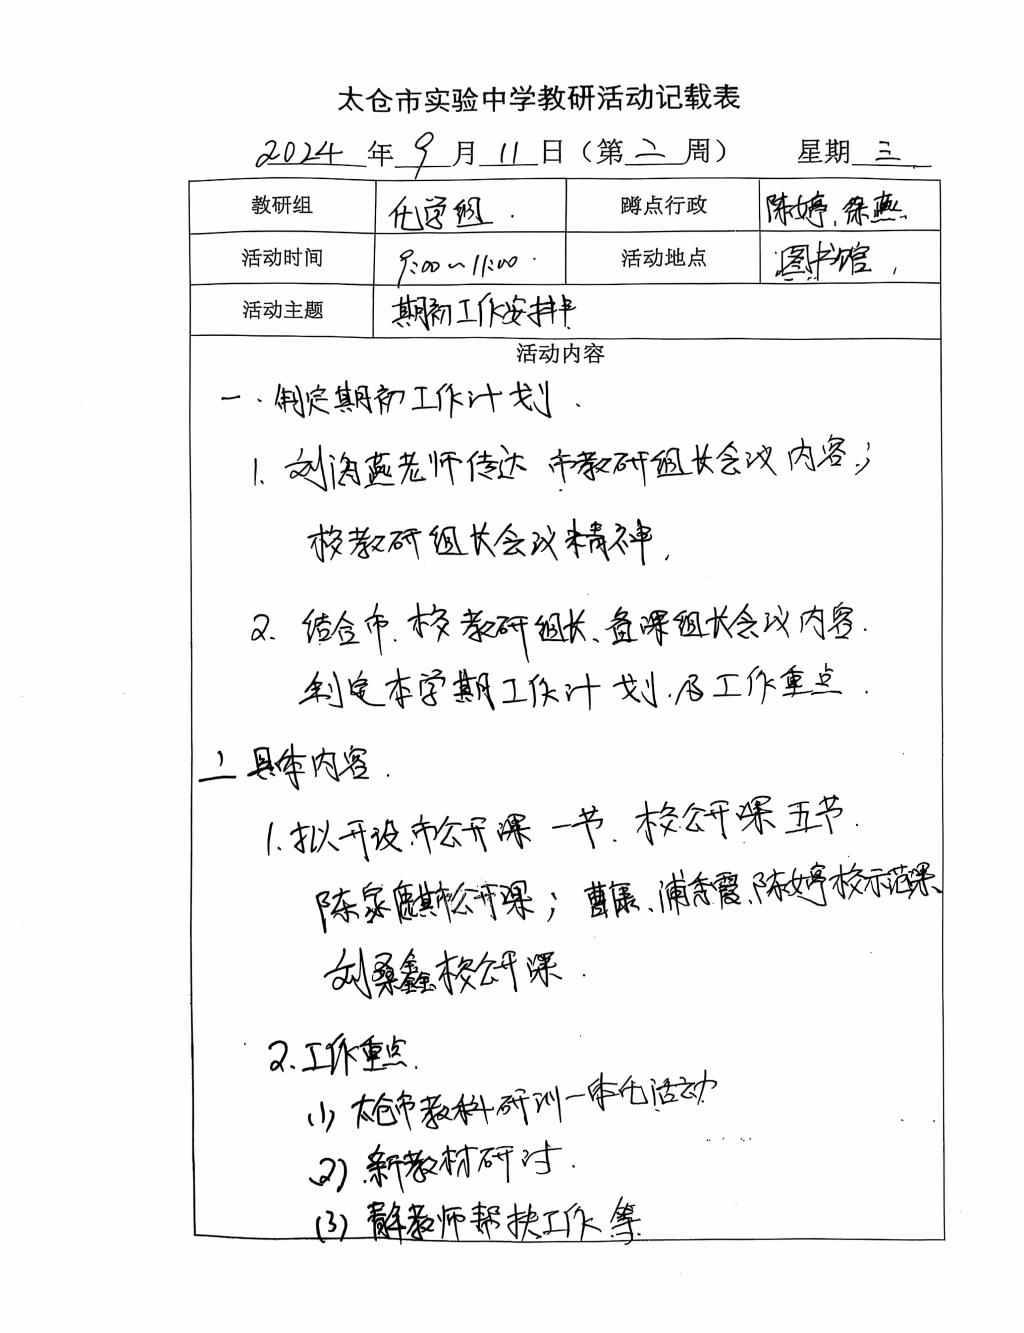 太仓市实验中学教研活动记载表
2024 年 9 月 11 日（第 二 周） 星期 三
教研组 化学组. 蹲点行政 陈婷、徐燕.
活动时间 9:00~11:00. 活动地点 图书馆,
活动主题 期初工作安排
活动内容
一.制定期初工作计划.
1. 刘海燕老师传达 市教研组长会议内容;
校教研组长会议精神,
2. 结合市、校教研组长、备课组长会议内容.
制定本学期工作计划.及工作重点.
二、具体内容.
1.拟开设市公开课一节.校公开课五节.
陈家麒市公开课; 曹康、浦秀霞、陈婷校示范课、
刘桑鑫校公开课.
2.工作重点.
(1) 太仓市教科研训一体化活动
(2) 新教材研讨.
(3) 青年教师帮扶工作 等